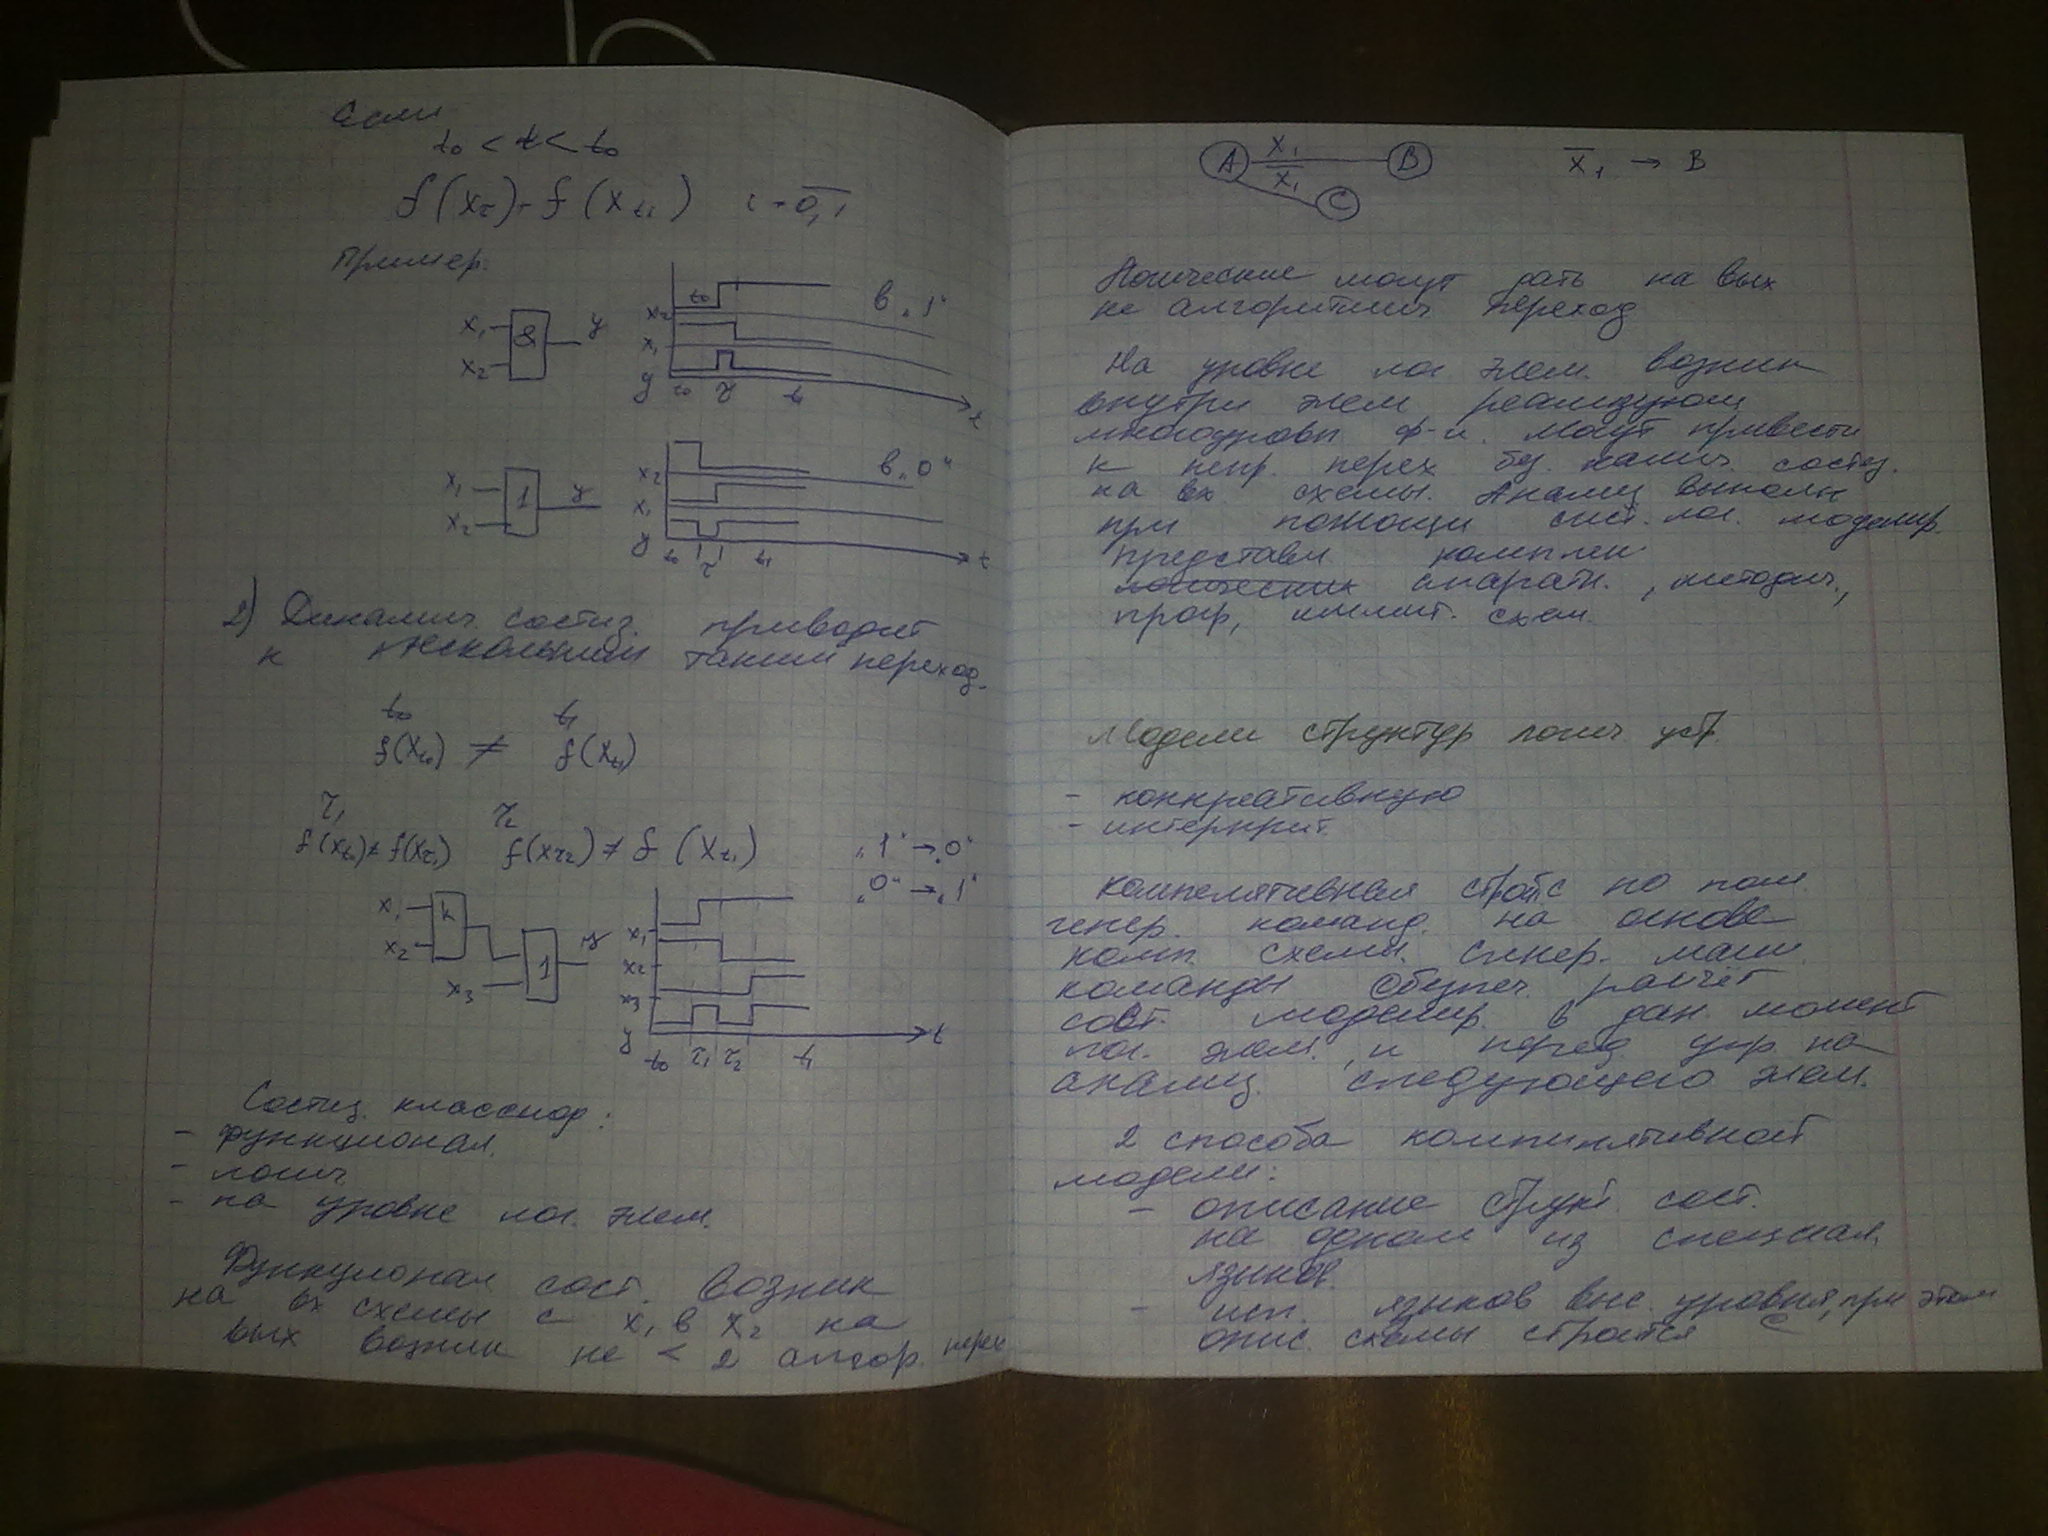 Если
t₀ < t < t₀
f(Xτ) = f(X t₁) i = 0,1
Пример.
X₁ X₂ & y
t₀ в „1“
x₂
x₁
y t₀ τ t₁ t
X₁ X₂ 1 y
в „0“
x₂
x₁
y t₀ τ t₁ t
2) Динамич. состяз. приводит
к нескольким таким переход.
t₀ t₁
f(Xt₀) ≠ f(Xt₁)
τ₁ τ₂
f(Xt₀) ≠ f(Xτ₁) f(Xτ₂) ≠ f(Xt₁) „1“ → „0“
„0“ → „1“
x₁ x₂ & x₃ 1 y
x₁
x₂
x₃
y t₀ τ₁ τ₂ t₁ t
Состяз. классиф:
- функционал.
- логич
- на уровне лог. элем.
Функционал сост. возник
на вх схемы с x₁ в x₂ на
вых возник не < 2 алгор. перех
A X₁ B X̅₁ C X̅₁ → B
Логические могут дать на вых
не алгоритмич переход
На уровне лог элем. возник
внутри элем реализующ
многоуровн. ф-и. Могут привести
к непр. перех без налич. состяз.
на вх. схемы. Анализ выполн
при помощи сист. лог. моделир.
представл комплекс
логических апаратн., методич.,
прогр, схем.
Модели структур логич уст.
- интерприт.
Компелятивная строитс по
генер. команд. на основе
комп. схемы. Сгенер. маш.
команды обеспеч. расчёт
сост. моделир. в дан. момент
лог. элем. и перед. упр. на
анализ. следующего элем.
2 способа компилятивност
модели:
- описание структ. сост.
на одном из специал.
языков.
- исп. языков выс. уровня, при этом
опис. схемы строится с